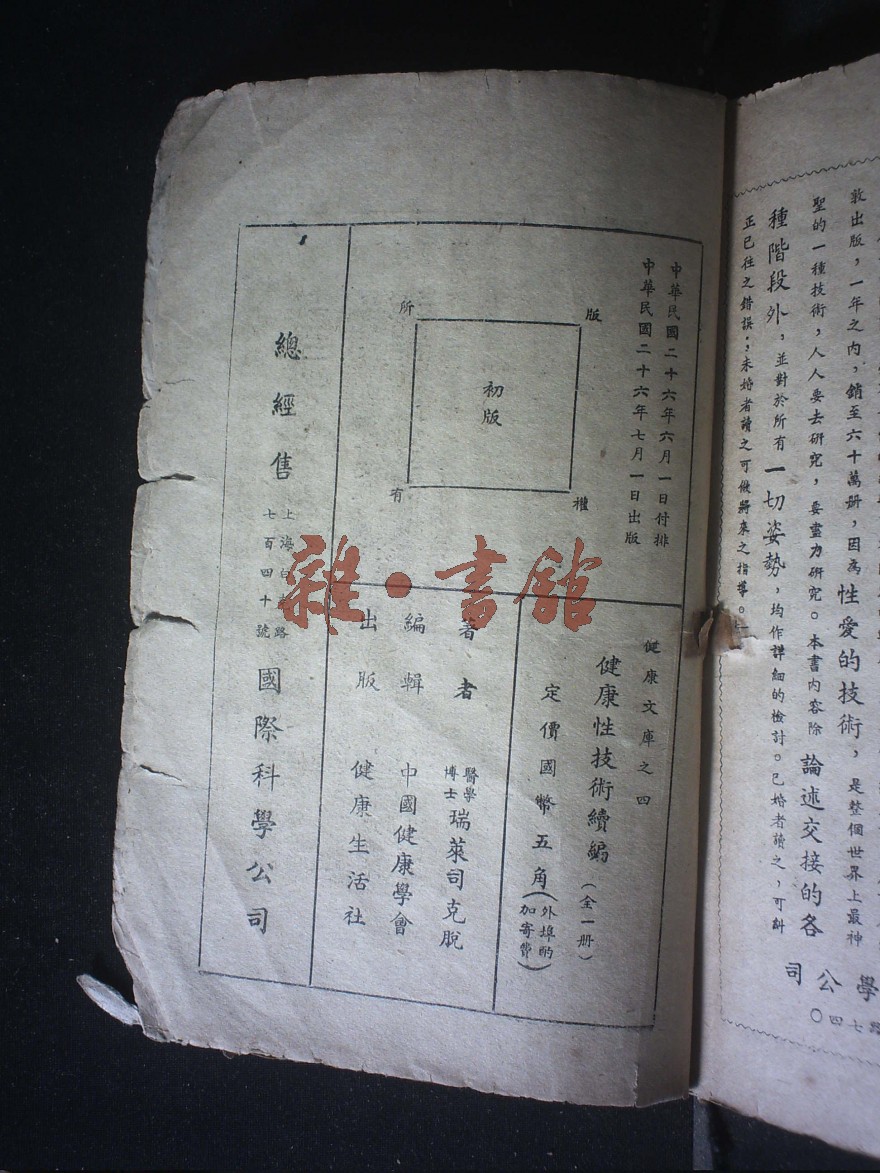 敦出版，一年之內，銷至六十萬册，因為性愛的技術，是整個世界上最神
聖的一種技術，人人要去研究，要盡力研究。本書內容除論述交接的各
種階段外，並對於所有一切姿勢，均作詳細的檢討。已婚者讀之，可糾
正已往之錯誤；未婚者讀之可做將來之指導。
學公司
路七四〇
中華民國二十六年六月一日付排
中華民國二十六年七月一日出版
版權所有
初版
健康文庫之四
健康性技術續編（全一册）
定價國幣五角（外埠酌加寄費）
著者 醫學博士瑞萊司克脫
編輯 中國健康學會
出版 健康生活社
總經售 上海白路七百四十號 國際科學公司
雜·書館